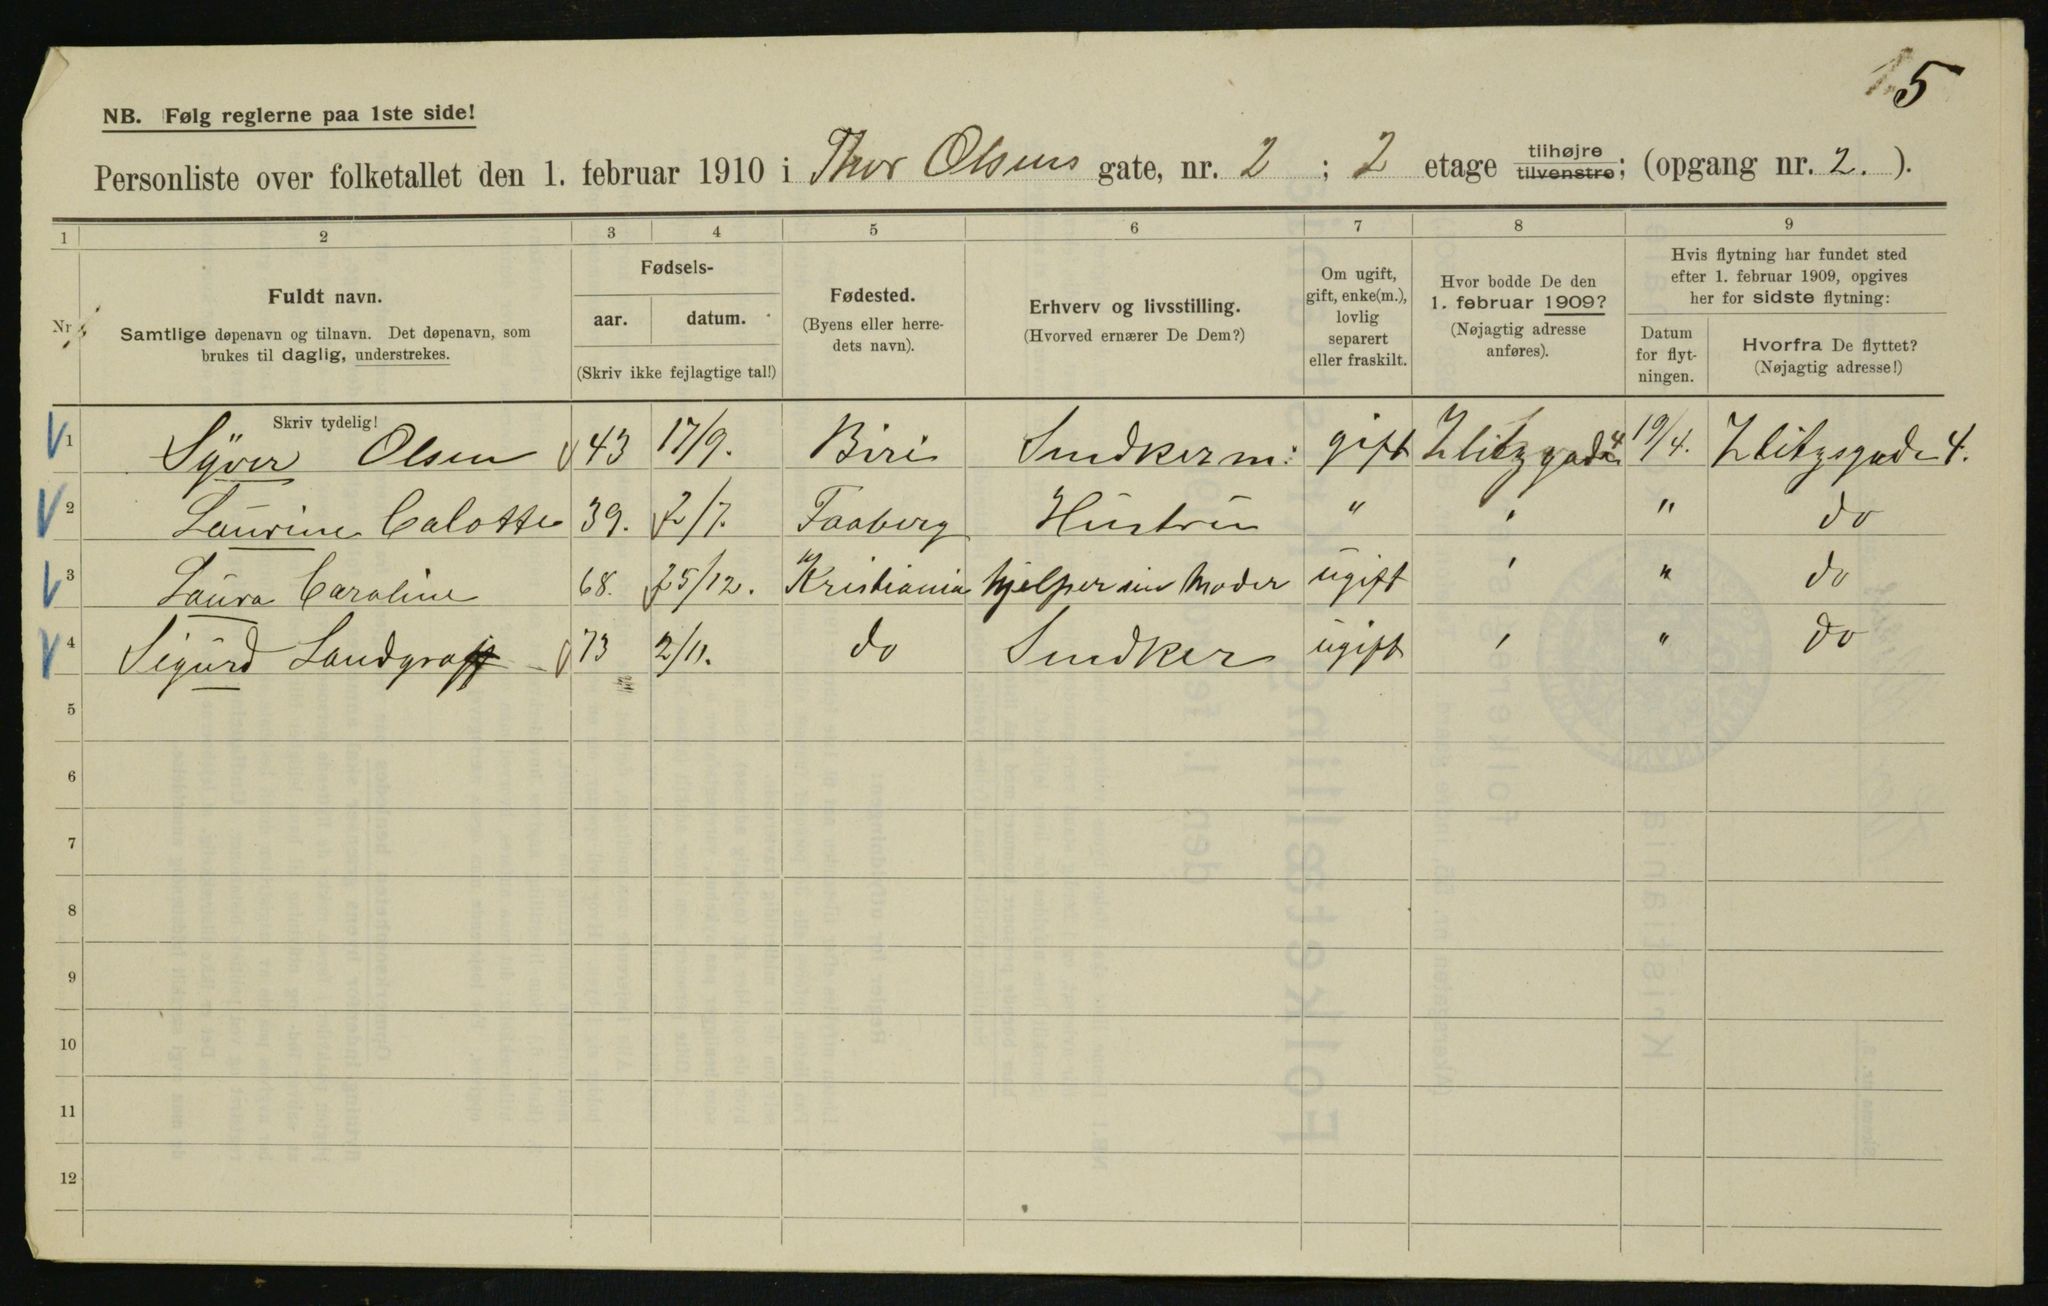 5
NB. Følg reglerne paa 1ste side!
Personliste over folketallet den 1. februar 1910 i Thor Olsens gate, nr. 2 ; 2 etage tilhøjre tilvenstre; (opgang nr. 2. ).
1 2 3 4 5 6 7 8 9
Nr. Fuldt navn. Samtlige døpenavn og tilnavn. Det døpenavn, som brukes til daglig, understrekes.
Fødsels- aar. datum. (Skriv ikke fejlagtige tal!)
Fødested. (Byens eller herredets navn).
Erhverv og livsstilling. (Hvorved ernærer De Dem?)
Om ugift, gift, enke(m.), lovlig separert eller fraskilt.
Hvor bodde De den 1. februar 1909? (Nøjagtig adresse anføres).
Hvis flytning har fundet sted efter 1. februar 1909, opgives her for sidste flytning:
Datum for flytningen.
Hvorfra De flyttet? (Nøjagtig adresse!)
Skriv tydelig!
1 Syver Olsen 43 17/9. Biri Snedker m: gift 4 19/4. 4.
2 Laurine Calotte 39. 2/7. Faaberg Hustru " " " do
3 Laura Caroline 68. 25/12. Kristiania hjelper sin Moder ugift " " do
4 Sigurd Landgraff 73 2/11. do Snedker ugift " " do
5
6
7
8
9
10
11
12